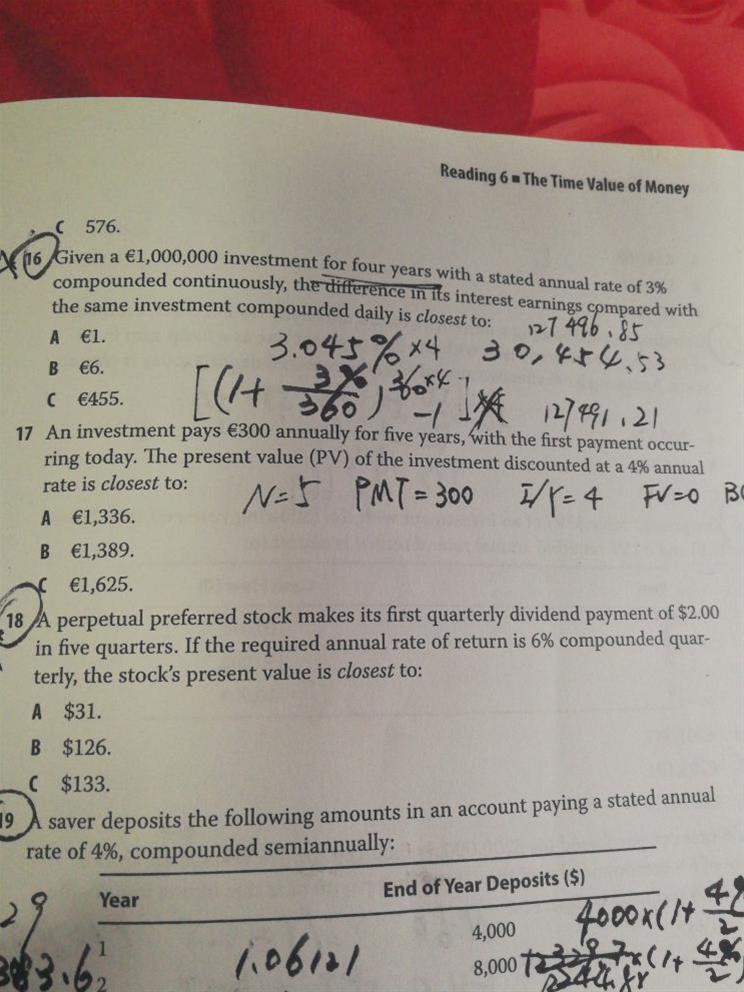 Reading 6 ■ The Time Value of Money
C 576.
16 Given a €1,000,000 investment for four years with a stated annual rate of 3%
compounded continuously, the difference in its interest earnings compared with
the same investment compounded daily is closest to:
127496.85
A €1.
3.045% ×4 30,454.53
B €6.
[(1+ 3%/360)360×4 -1]
C €455.
127491.21
17 An investment pays €300 annually for five years, with the first payment occur-
ring today. The present value (PV) of the investment discounted at a 4% annual
rate is closest to:
N=5 PMT=300 I/Y=4 FV=0
A €1,336.
B €1,389.
C €1,625.
18 A perpetual preferred stock makes its first quarterly dividend payment of $2.00
in five quarters. If the required annual rate of return is 6% compounded quar-
terly, the stock's present value is closest to:
A $31.
B $126.
C $133.
19 A saver deposits the following amounts in an account paying a stated annual
rate of 4%, compounded semiannually:
Year End of Year Deposits ($)
29
1 4,000 4000×(1+ 4%/2
1.06121
2 8,000 ×(1+ 4%/2